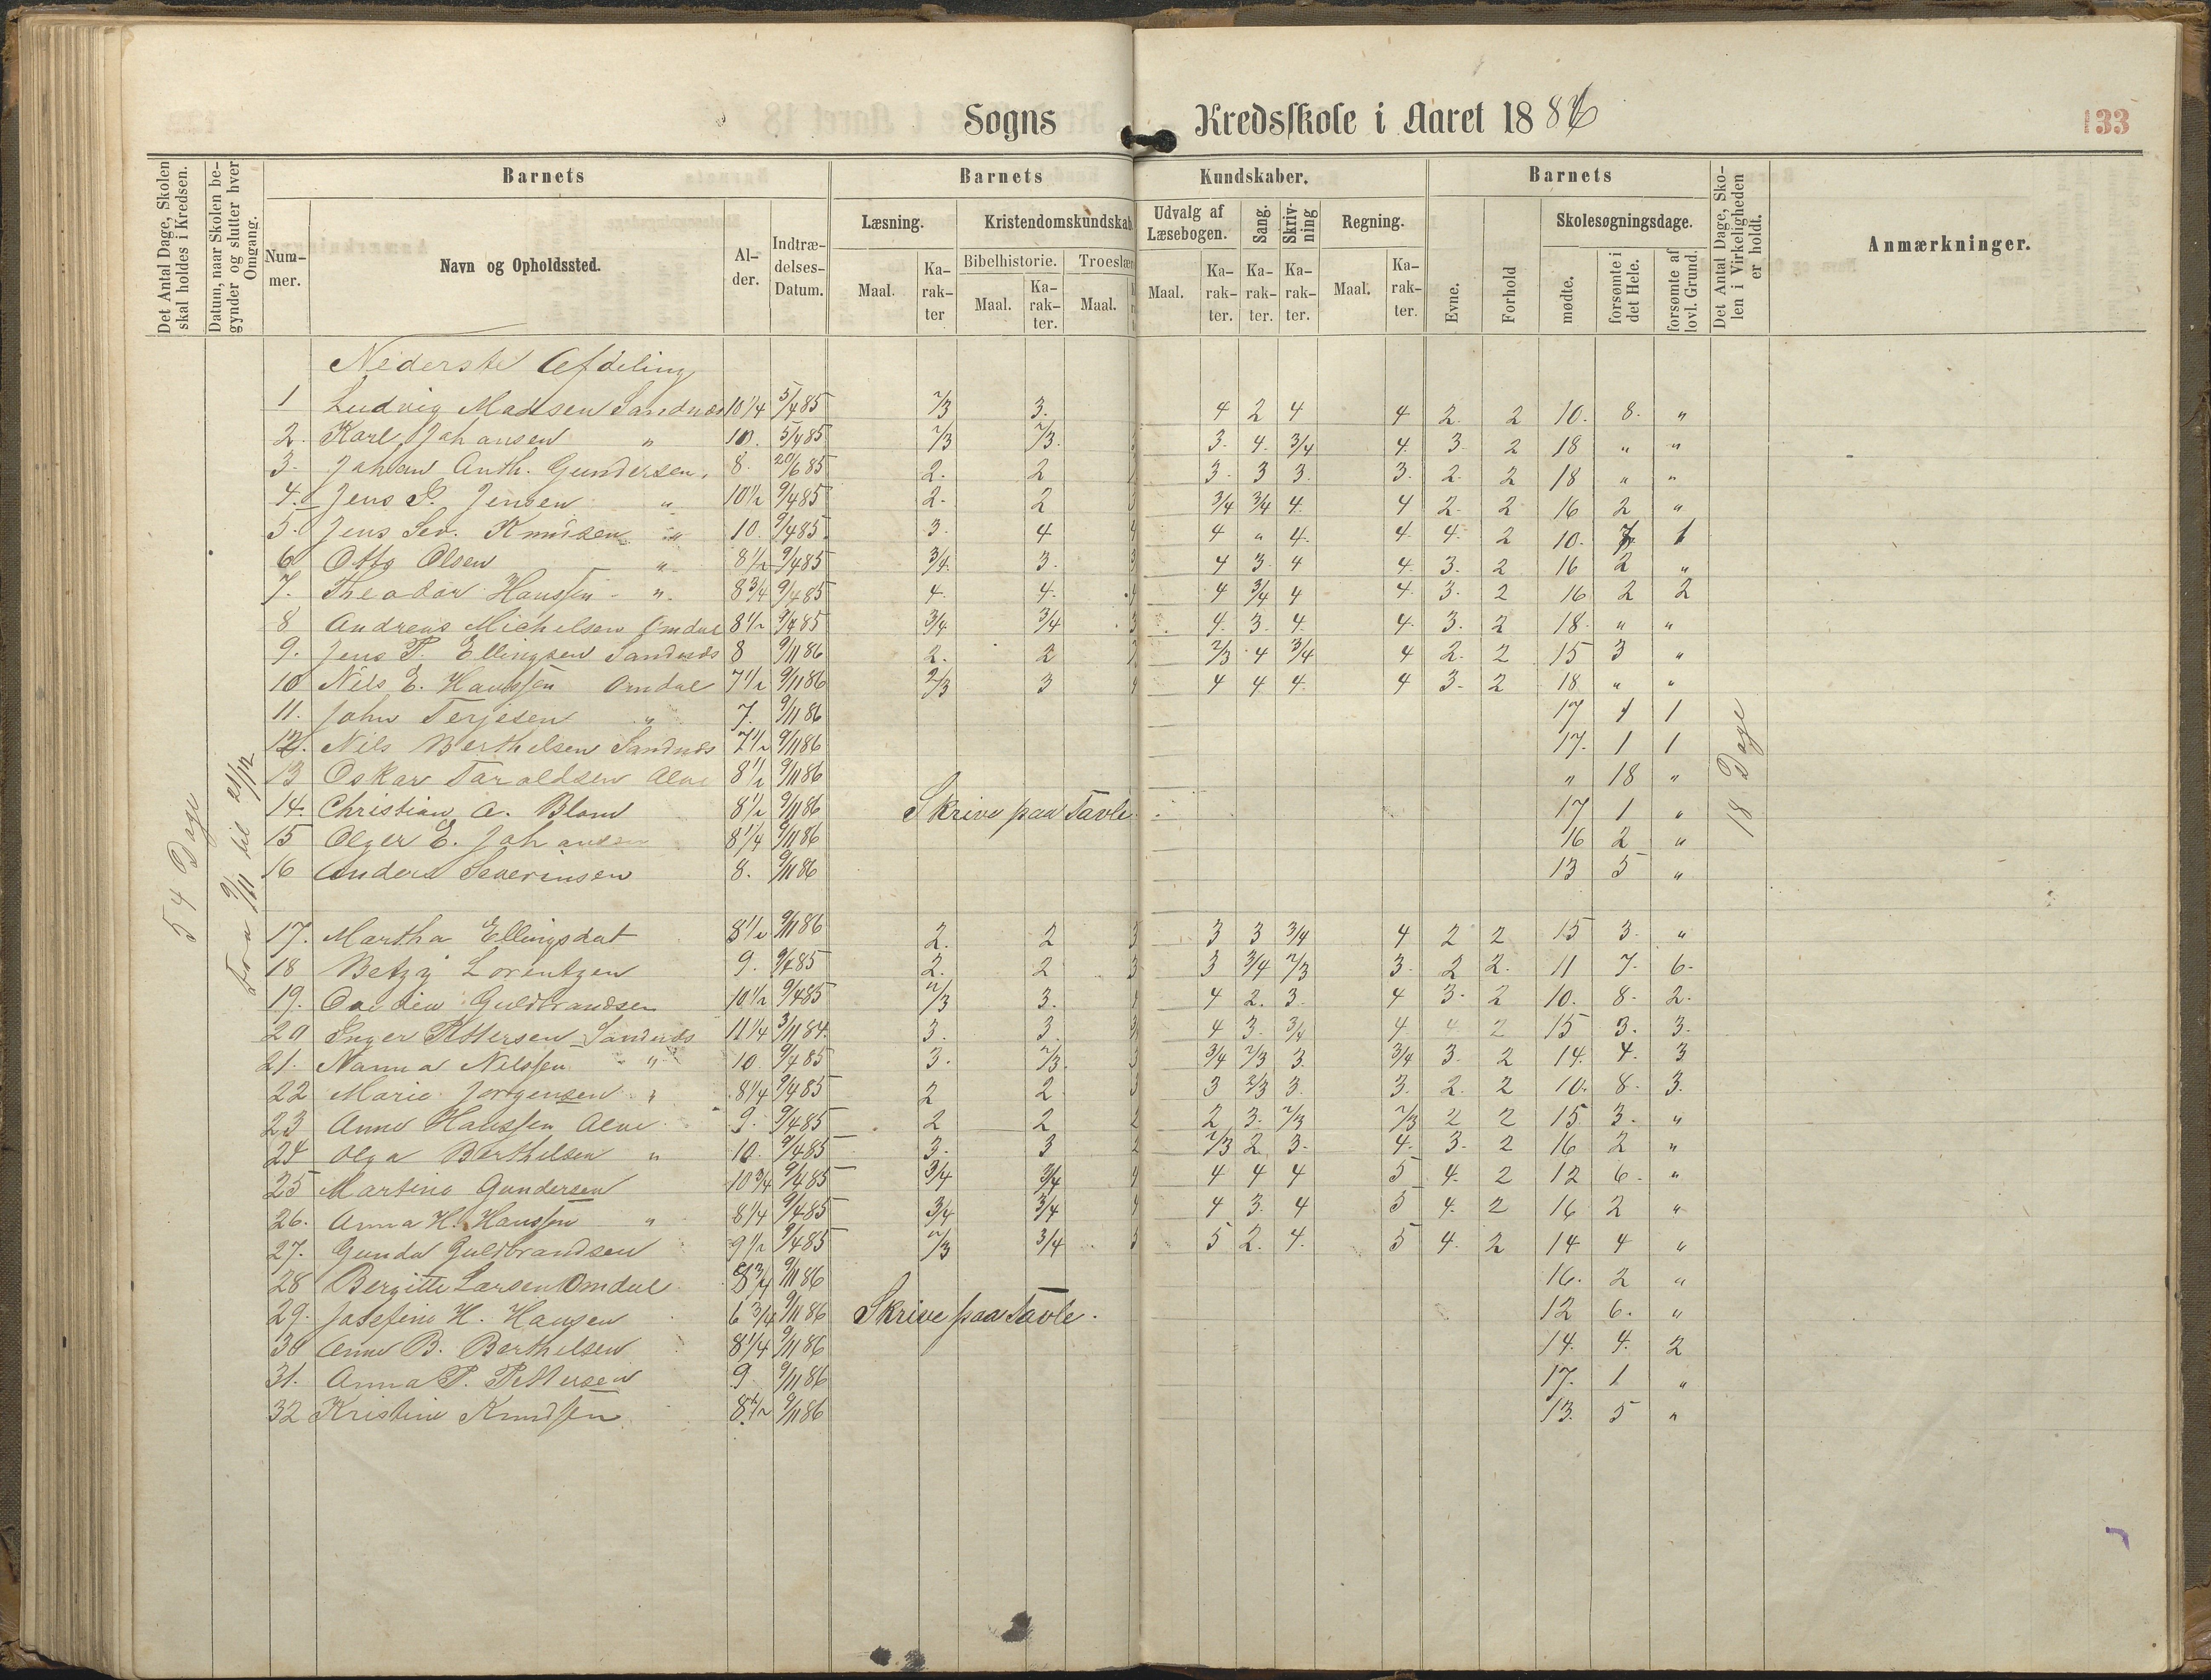 Sogns Kredsskole i Aaret 1886
133
Det Antal Dage, Skolen skal holdes i Kredsen.
Datum, naar Skolen begynder og slutter hver Omgang.
Barnets
Nummer.
Navn og Opholdssted.
Alder.
Indtrædelses-Datum.
Barnets Kundskaber.
Læsning.
Maal.
Karakter
Kristendomskundskab
Bibelhistorie.
Maal.
Karakter.
Troeslær
Maal.
Udvalg af Læsebogen.
Maal.
Karakter.
Sang.
Karakter.
Skrivning
Karakter.
Regning.
Maal.
Karakter.
Barnets
Evne.
Forhold
Skolesøgningsdage.
mødte.
forsømte i det Hele.
forsømte af lovl. Grund.
Det Antal Dage, Skolen i Virkeligheden er holdt.
Anmærkninger.
54 Dage
Fra 9/11 til 21/12
18 Dage
Nederste Afdeling
1 Ludvig Madsen Sandnæs 10 1/4 5/4 85 2/3 3. 4 2 4 4 2. 2 10. 8. "
2. Karl Johansen " 10. 5/4 85 2/3 2/3. 3. 4. 3/4 4. 3. 2 18 " "
3. Johan Anth. Gundersen. 8. 20/6 85 2. 2 3. 3 3. 3. 2. 2 18 " "
4. Jens P. Jensen " 10 1/2 9/4 85 2. 2 3/4 3/4 4. 4 2. 2 16 2 "
5. Jens Sev. Knudsen " 10. 9/4 85. 3. 4 4 " 4. 4. 4. 2 10. 7 1
6 Otto Olsen " 8 1/2 9/4 85 3/4. 3. 4 3. 4 4. 3. 2 16 2 "
7. Theodor Hanssen " 8 3/4 9/4 85 4. 4. 4 3/4 4 4. 3. 2 16 2 2
8 Andreas Michelsen Omdal 8 1/2 9/4 85 3/4 3/4 4. 3. 4. 4. 3. 2 18. " "
9. Jens T. Ellingsen Sandnæs 8 9/11 86 2. 2 2/3 4 3/4 4 2. 2 15 3 "
10 Nils E. Hanssen Omdal 7 1/2 9/11 86 2/3 3 4 4 4. 4 3. 2 18 " "
11. John Terjesen " 7. 9/11 86 17 1 1
12. Nils Berthelsen Sandnæs 7 1/2 9/11 86 17. 1 1
13 Oskar Taraldsen Alve 8 1/2 9/11 86 " 18 "
14. Christian A. Blom 8 1/2 9/11 86 Skrive paa Tavle 17 1 "
15 Olger E. Johansen 8 1/4 9/11 86 16 2 "
16 Anders Severinsen 8. 9/11 86 13 5 "
17. Martha Ellingsdat 8 1/2 9/11 86 2. 2 3 3 3 3/4 4 2 2 15 3 "
18 Betzy Lorentzen 9. 9/4 85 2. 2 3 3 3/4 2/3 3. 2 2. 11 7. 6.
19. Guldbrandsen 10 1/2 9/4 85 2/3 3. 4 2. 3. 4 3. 2 10. 8. 2.
20 Inger Pettersen Sandnæs 11 1/4 3/11 84. 3. 3. 4 3. 3/4 4. 4 2 15 3. 3.
21. Nanna Nilssen " 10 9/4 85 3. 2/3. 3/4 2/3 3. 3/4 3. 2 14. 4. 3
22 Marie Jørgensen " 8 1/4 9/4 85 2 2 3 3 2/3 3. 3. 2. 2 10. 8. 3.
23 Anne Hanssen Alve 9. 9/4 85 2 2 2 2 3. 2/3 2/3 2 2 15. 3. "
24 Olga Berthelsen " 10. 9/4 85 3. 3 2/3 2 3. 4. 3. 2 16 2 "
25 Martine Gundersen 10 3/4 9/4 85 3/4 3/4 4 4 4 5 4. 2 12 6. "
26. Anna H. Hanssen " 8 1/4 9/4 85 3/4 3/4 4 3. 4 5 4. 2 16 2 "
27. Gunda Guldbrandsen 9 1/2 9/4 85 2/3 3/4 5 2. 4. 5 4. 2 14 4 "
28 Bergitte Larsen Omdal 8 3/4 9/11 86 16. 2 "
29. Josefine H. Hansen 6 3/4 9/11 86 Skrive paa Tavle. 12 6. "
30 Anne B. Berthelsen 8 1/4 9/11 86 14. 4. 2
31. Anna P. Pettersen 9 9/11 86 17. 1 "
32 Kristine Knudssen 8 1/2 9/11 86 13. 5 "